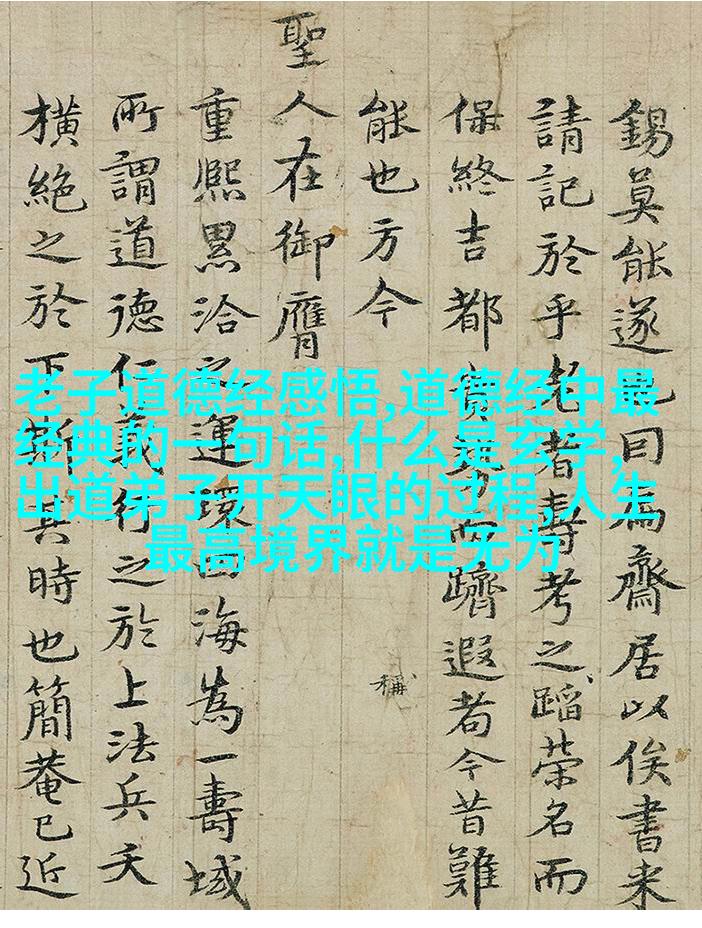 錫莫能遂曰為齋居以俟書来
請記於乎者壽考之蹈榮名而
保終吉都貴而躋遐耈今昔難
能也方今
稱
聖人在御膺
重熙累洽之運環四海為一壽域
所謂道德仁義行之於上法兵夭
橫絶之於下斯其時也簡菴已近
老子道德经感悟,道德经中最
经典的一句话,什么是玄学,
出道弟子开天眼的过程,人生
最高境界就是无为